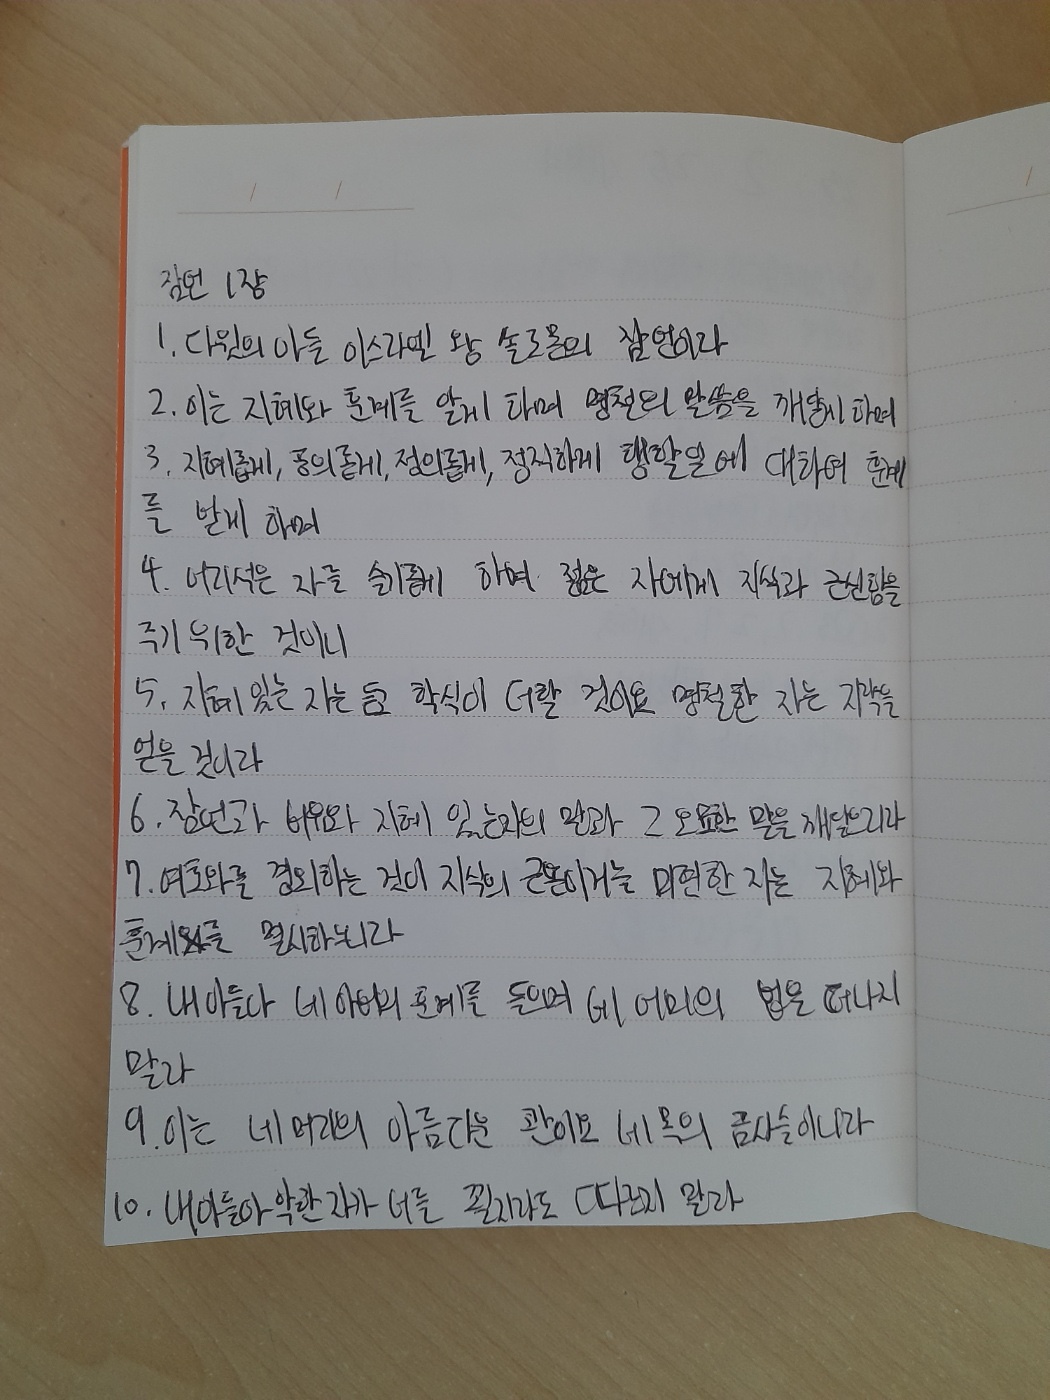 잠언 1장
1. 다윗의 아들 이스라엘 왕 솔로몬의 잠언이라
2. 이는 지혜와 훈계를 알게 하며 명철의 말씀을 깨닫게 하며
3. 지혜롭게, 공의롭게, 정의롭게, 정직하게 행할일에 대하여 훈계
를 받게 하며
4. 어리석은 자를 슬기롭게 하며 젊은 자에게 지식과 근신함을
주기 위한 것이니
5. 지혜 있는 자는 듣고 학식이 더할 것이요 명철한 자는 지략을
얻을 것이라
6. 잠언과 비유와 지혜 있는자의 말과 그 오묘한 말을 깨달으리라
7. 여호와를 경외하는 것이 지식의 근본이거늘 미련한 자는 지혜와
훈계를 멸시하느니라
8. 내 아들아 네 아비의 훈계를 들으며 네 어미의 법을 떠나지
말라
9. 이는 네 머리의 아름다운 관이요 네 목의 금사슬이니라
10. 내 아들아 악한 자가 너를 꾈지라도 따르지 말라